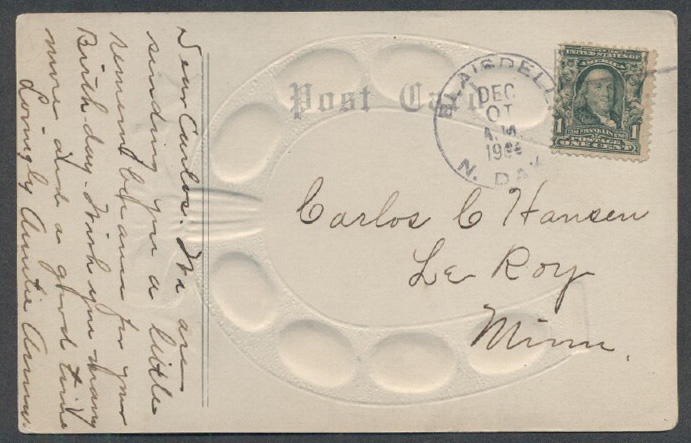 Dear Carlos:- We are
sending you a little
remembrance for your
Birth-day. Wish you many
more and a good time
Lovingly Auntie Anna.
Post Card
BLAISDELL
DEC
07
A.M.
N. DAK
UNITED STATES OF
AMERICA
1 1
FRANKLIN
POSTAGE
ONE CENT
Carlos C Hansen
Le Roy
Minn.